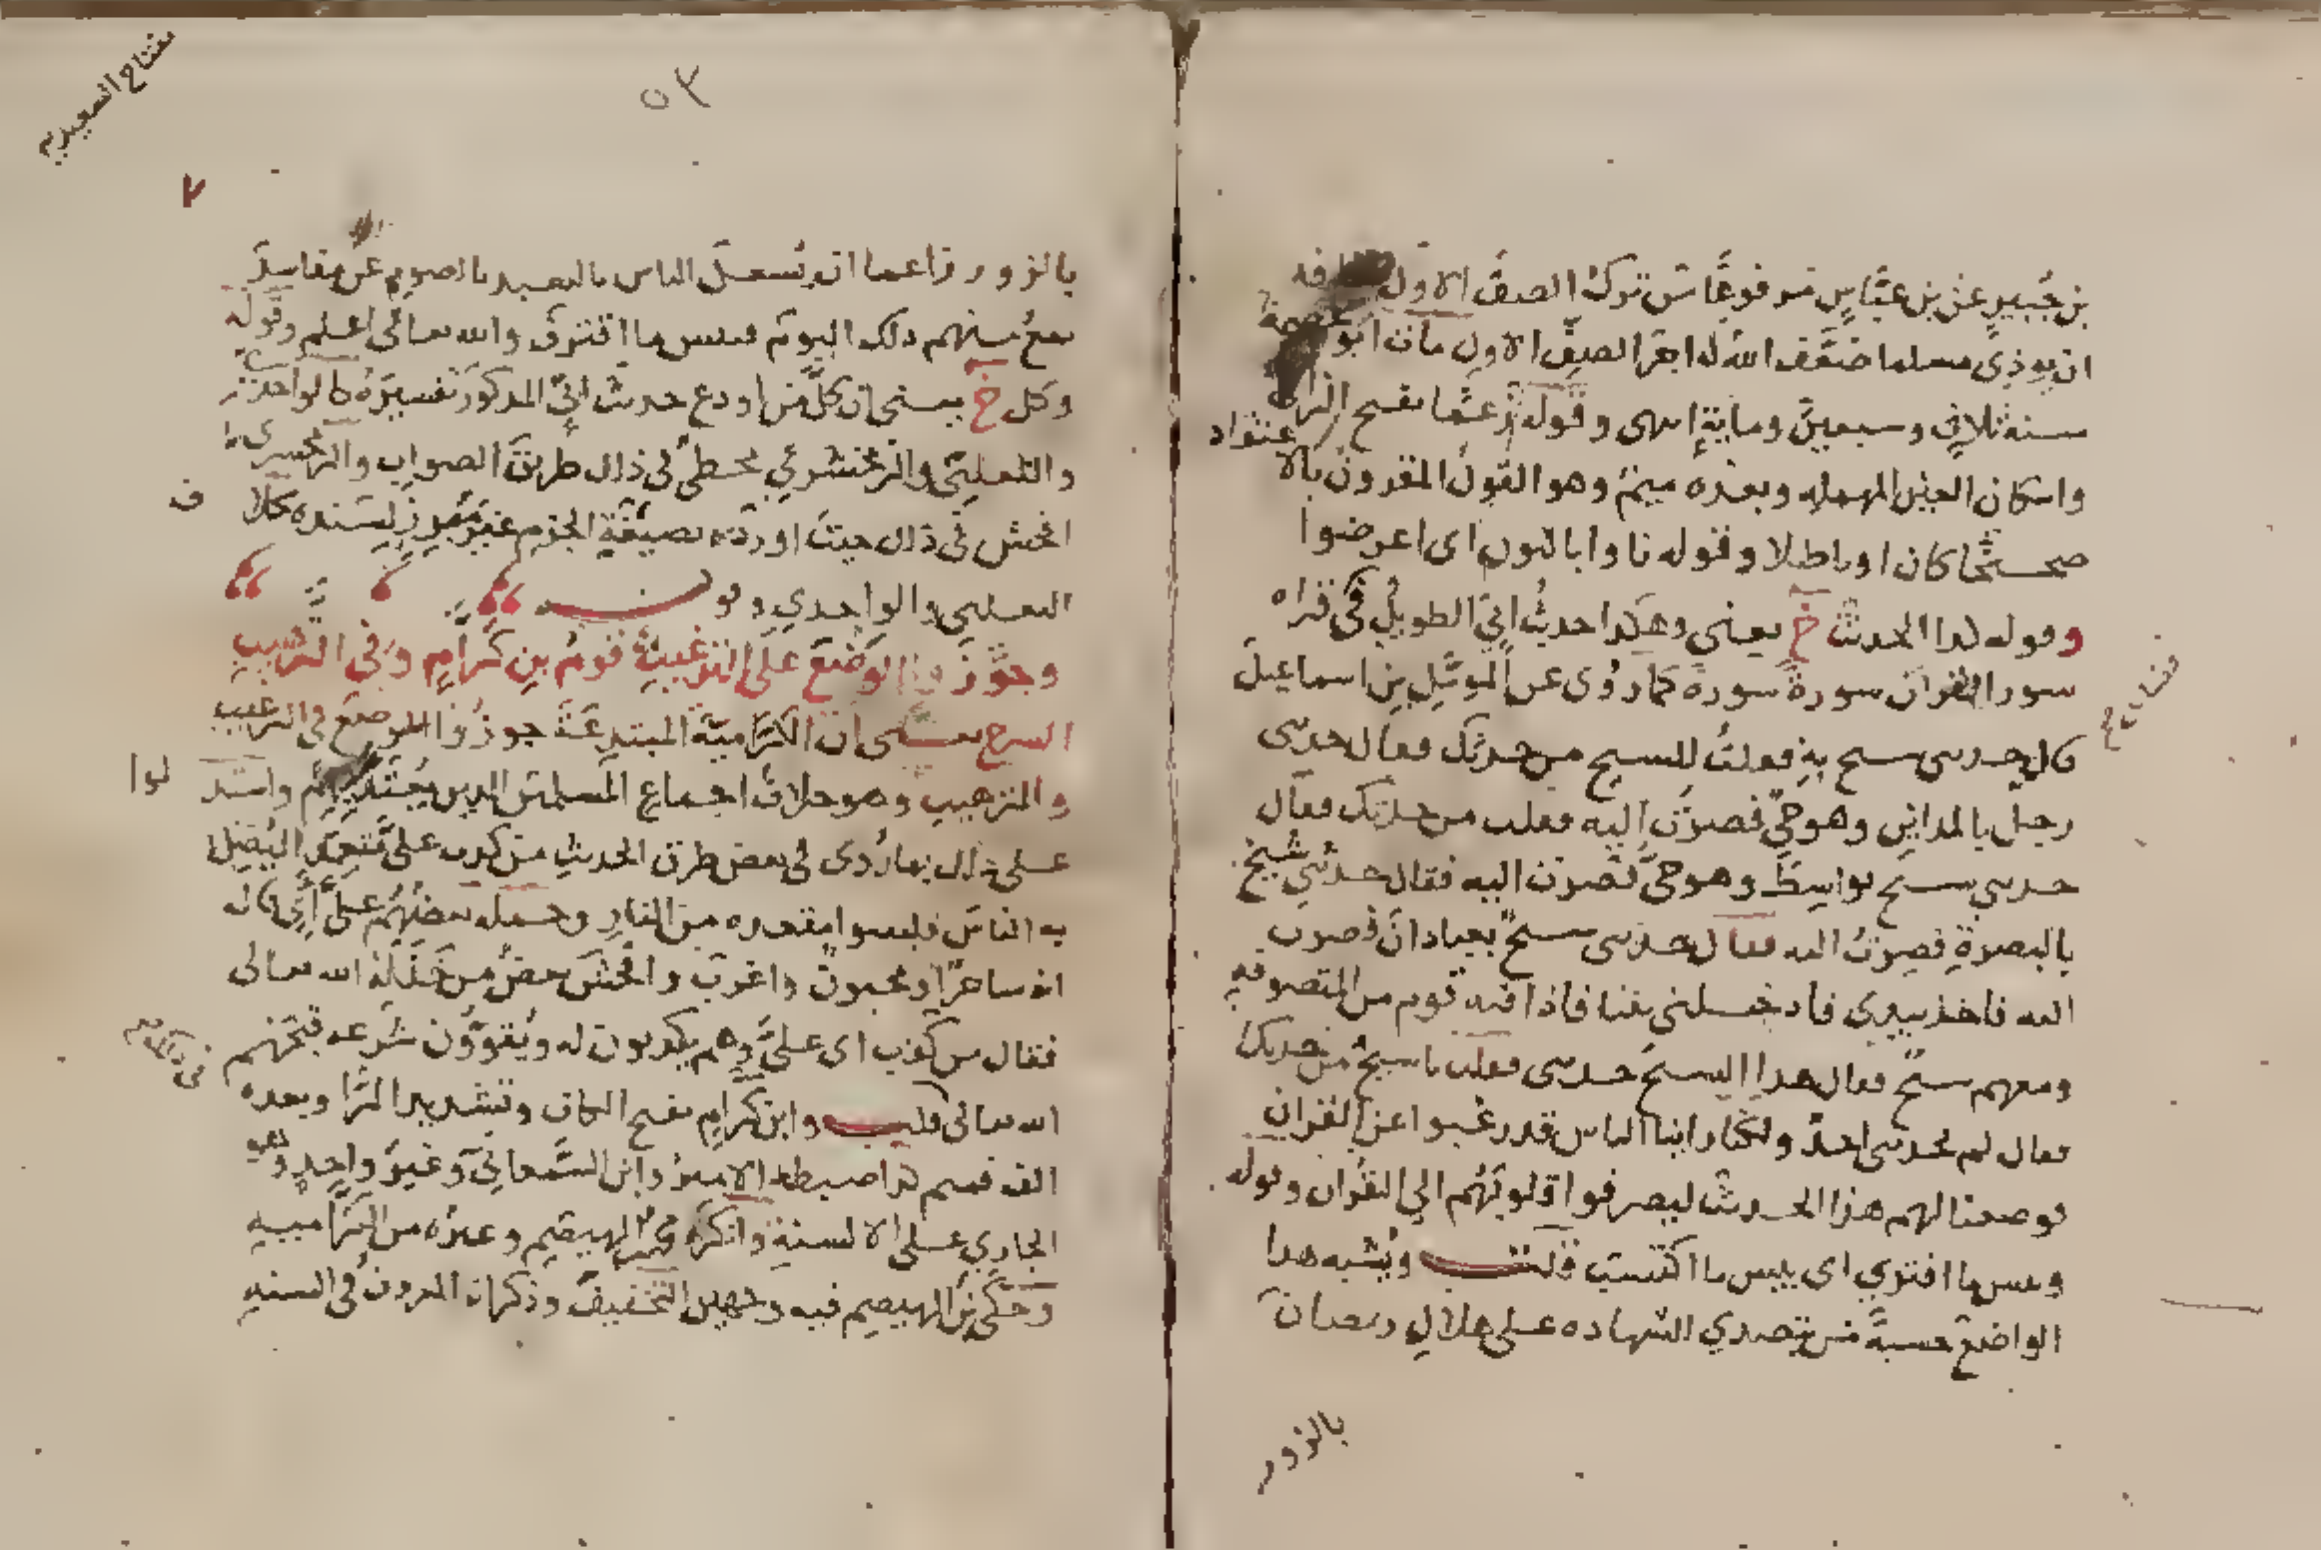 بن جبير عن بن عباس مرفوعا من ترك الصف الاول مخافة
ان يوذي مسلما ضعف الله له اجر الصف الاول مات ابو عصمة
سنة ثلاث وسبعين وماية انتهى وقوله زعما بفتح الزاي
واسكان العين المهمله وبعده ميم وهو القول المقرون بالاعتقاد
صح كان او باطلا وقوله ناوا بالنون اى اعرضوا
وقوله كذا الحديث خ يعني وهكذا حديث ابي الطويل في قراه
سور القران سورة سورة كما روى عن المومل بن اسماعيل
قال حدثنى شيخ به فقلت للشيخ من حدثك فقال حدثنى
رجل بالمداين وهو حي فصرت اليه فقلت من حدثك فقال
حدثنى شيخ بواسط وهو حي فصرت اليه فقال حدثني شيخ
بالبصرة فصرت اليه فقال حدثنى شيخ بعبادان فصرت
اليه فاخذ بيدي فادخلني بيتا فاذا فيه قوم من المتصوفه
ومعهم شيخ فقال هذا الشيخ حدثنى فقلت يا شيخ من حدثك
فقال لم يحدثنى احد ولكنا راينا الناس قد رغبوا عن القران
فوضعنا لهم هذا الحديث ليصرفوا قلوبهم الي القران وقوله
وبيس ما افتري اى بيس ما اكتسب قلت ويشبه هذا
الواضع حسبة من يتصدي الشهاده على هلال رمضان
بالزور
مفتاح السعيديه
٥٣
٧
بالزور زاعما ان يشغل الناس بالتعبد بالصوم عن مفاسد
تقع منهم ذلك اليوم فبيس ما اقترف والله تعالى اعلم وقوله
وكل خ يعني ان كل من اودع حديث ابي المذكور تفسيره كالواحدي
والثعلبي والزمخشري مخطي في ذلك طريق الصواب والزمخشري
افحش في ذلك حيث اورده بصيغة الجزم غير مبرز لسنده كلاف
الثعلبي والواحدي وقوله
وجوز الوضع على الترغيب قوم بن كرام وفى الترهيب
الشرح يعني ان الكرامية المبتدعة جوزوا الوضع في الترغيب
والترهيب وهو خلاف اجماع المسلمين الذين يعتد بهم واستدلوا
على ذلك بما روى في بعض طرق الحديث من كذب على متعمدا ليضل
به الناس فليتبوا مقعده من النار وحمله بعضهم على اى قال
انه ساحر او مجنون واغرب وافحش بعض من خذله الله تعالى
فقال من كذب اى على وهم يكذبون له ويقوون شرعه
الله تعالى قلت وابن كرام بفتح الكاف وتشديد الرا وبعده
الف فميم كذا ضبطه الامير وابن السمعاني وغير واحد وهو
الجاري على الالسنة وانكره محمد بن الهيصم وغيره من الكراميه
وحكى بن الهيصم فيه وجهين التخفيف وذكر انه المعروف في السنه